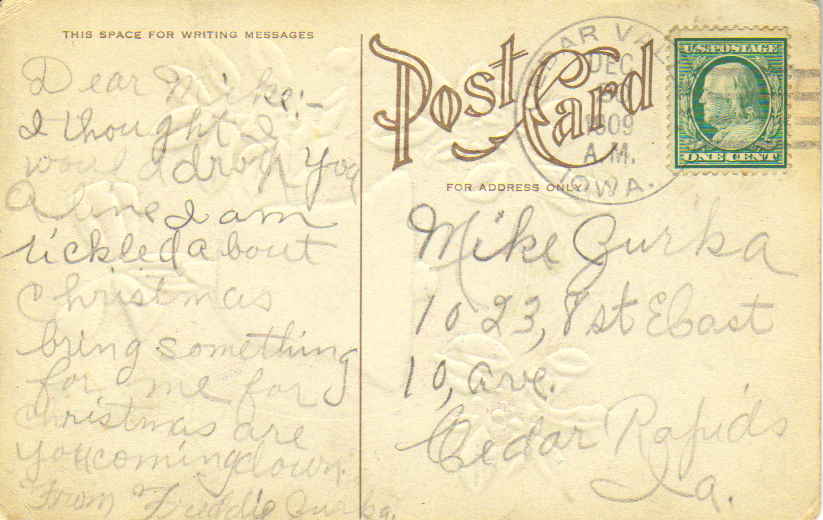 THIS SPACE FOR WRITING MESSAGES
Dear Mike:-
I thought I
would drop you
a line I am
tickled about
Christmas
bring something
for me for
christmas are
you coming down.
From Freddie Zurka.
Post Card
DEC
1909
A.M.
IOWA.
U.S. POSTAGE
ONE CENT
FOR ADDRESS ONLY
Mike Zurka
1023, 1st East
10, ave.
Cedar Rapids
Ia.